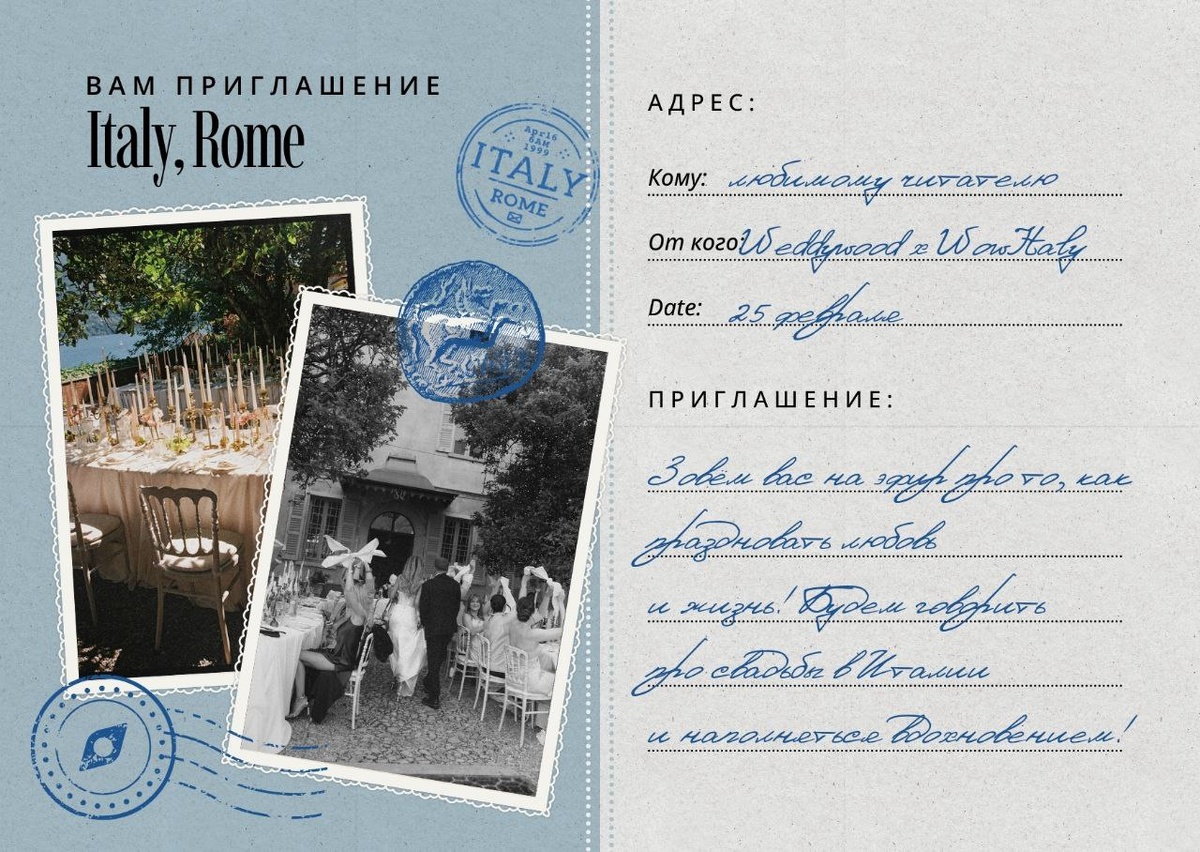 ВАМ ПРИГЛАШЕНИЕ
Italy, Rome
Apr16
6AM
1999
ITALY
ROME
АДРЕС:
Кому: любимому читателю
От кого: Weddywood x WowItaly
Date: 25 февраля
ПРИГЛАШЕНИЕ:
Зовём вас на эфир про то, как
праздновать любовь
и жизнь! Будем говорить
про свадьбы в Италии
и наполняться вдохновением!